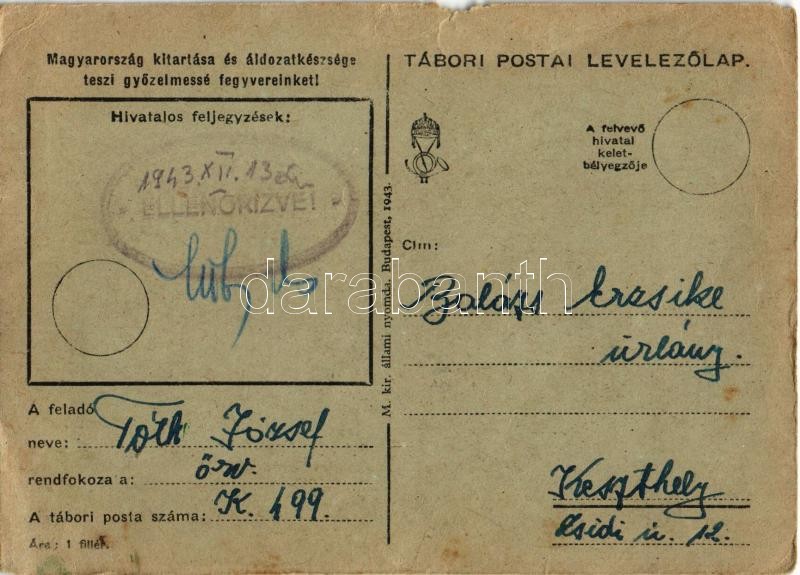 Magyarország kitartása és áldozatkészsége
teszi győzelmessé fegyvereinket!
Hivatalos feljegyzések:
1943. XII. 13 án
ELLENŐRIZVE!
A feladó
neve: Tóth József
rendfokoza a: őrv.
A tábori posta száma: K. 499.
Ára: 1 fillér.
M. kir. állami nyomda. Budapest, 1943.
TÁBORI POSTAI LEVELEZŐLAP.
A felvevő
hivatal
kelet-
bélyegzője
Cím:
Balázs Erzsike
úrlány.
Keszthely
Zsidi u. 12.
darabanth.com